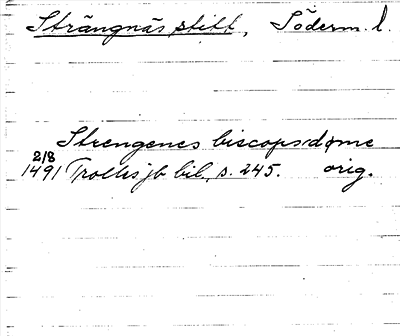 Strängnäs stift, Söderm. l.
Strengenes biscopsdøme
2/8
1491 Trolles jb bil., s. 245. orig.